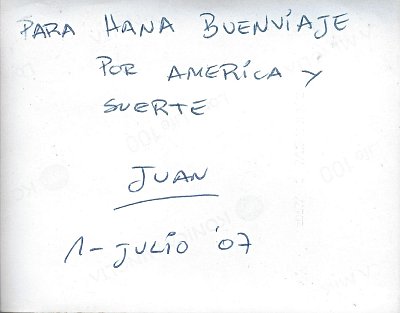 PARA HANA BUENVIAJE
POR AMERICA Y
SUERTE
JUAN
1- JULIO '07